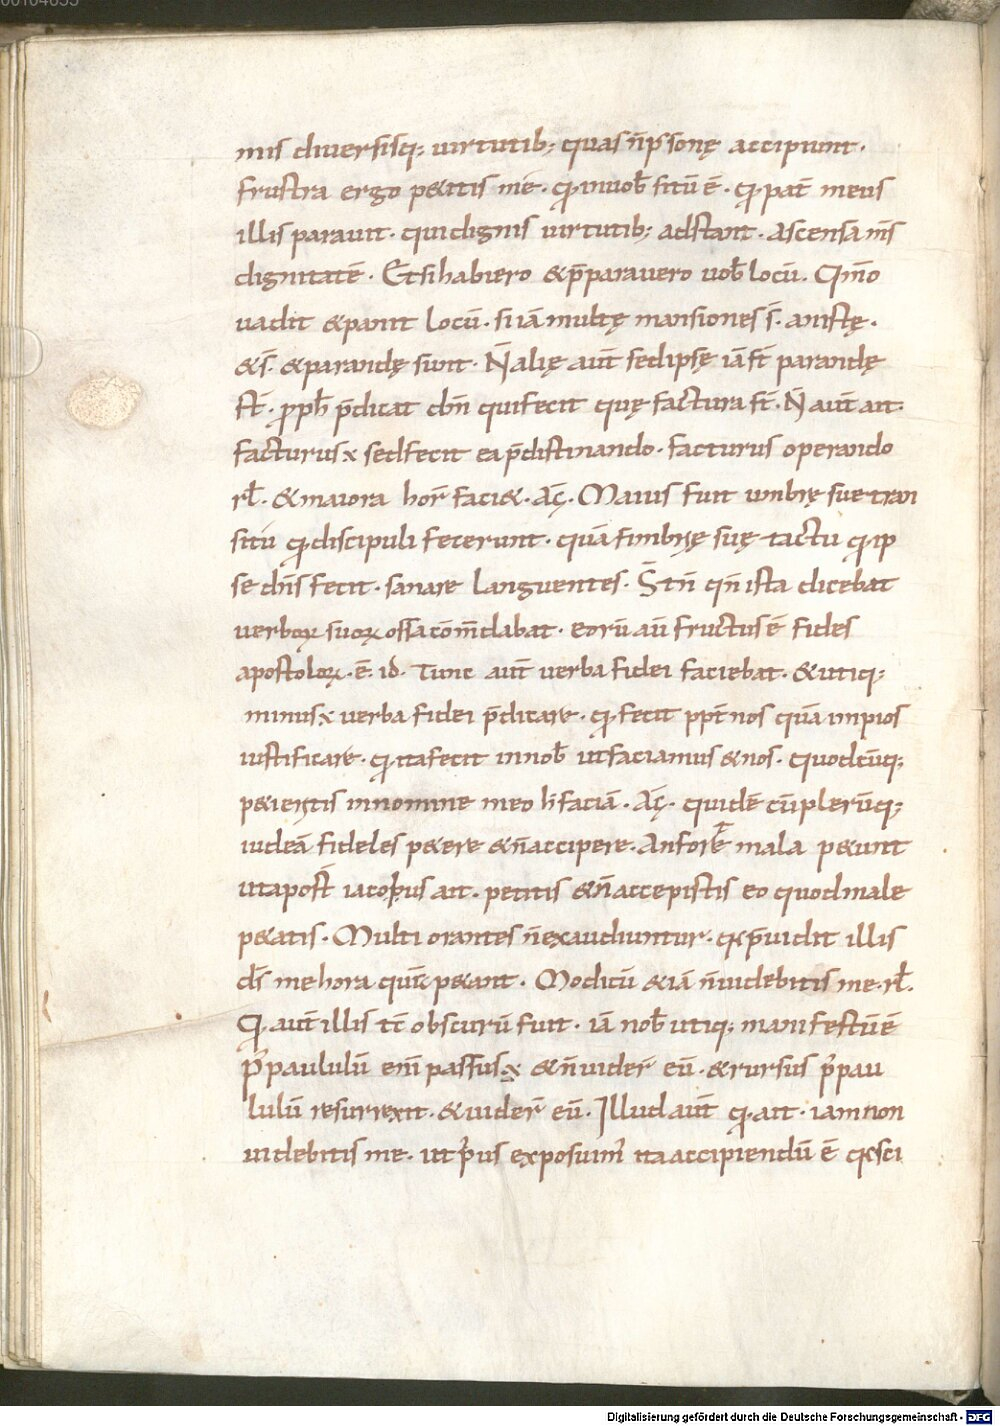 00104655
mis diuersisq; uirtutib; quas n̄psonę accipiunt.
frustra ergo p&itis me. q̨ inuob̄ sitū ē. q̨ pat̄ meus
illis parauit. quidignis uirtutib; adstant. ascensam̄s
dignitatē. Etsihabiero &p̄parauero uob̄ locū. Qm̄o
uadit &parat locū. si iā multę mansiones s̄. aiustę.
&s̄. &parandę sunt. N̄ alię aut̄ sedipsę iā st̄ parandę
st̄. pph̄ p̄dicat dn̄ quifecit quę factura st̄. N̄ aut̄ ait.
facturus x sedfecit ea p̄distinando. facturus operando
rl̄. & maiora hor̄ faci&. Aç. Maius fuit umbrę sue tran
sitū q̨ discipuli fecerunt. quā fimbrię suę tactu q̨ ip
se dn̄s fecit. sanare languentes. S̄ tn̄ qn̄ ista dicebat
uerboꝝ suoꝝ ossa cōm̄dabat. eorū aū fructus ē fides
apostoloꝝ. ē. id. Tunc aut̄ uerba fidei faciebat. &utiq;
minus x uerba fidei p̄dicare. q̨ fecit ppt̄ nos quā impios
iustificare. q̨ itafecit innob̄ utfaciamus &nos. quodcūq;
p&ieritis innomine meo h̄ faciā. Aç. quidē cū plerūq;
uideā fideles p&ere &n̄accipere. Anforte mala p&unt
utapost̄ iacobus ait. petitis &n̄ accepistis eo quodmale
p&atis. Multi orantes n̄exaudiuntur. q̨ p̄uidit illis
ds̄ me hora quā p&ant. Modicū &iā n̄uidebitis me. rl̄.
Q̨ aut̄ illis tc̄ obscurū fuit. iā nob̄ utiq; manifestū ē
p̄ paululū eni̅ passus x &n̄ uider̄ eū. &rursus p̄ pau
lulū resurrexit. &uider̄ eū. Illud aut̄ q̨ ait. iamnon
uidebitis me. ut p̄us exposuim̄ ita accipiendū ē q̨ sci
Digitalisierung gefördert durch die Deutsche Forschungsgemeinschaft - DFG